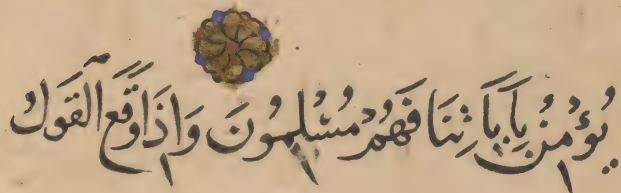 يُؤْمِنُ بِآيَاتِنَا فَهُمْ مُسْلِمُونَ وَإِذَا وَقَعَ الْقَوْلُ